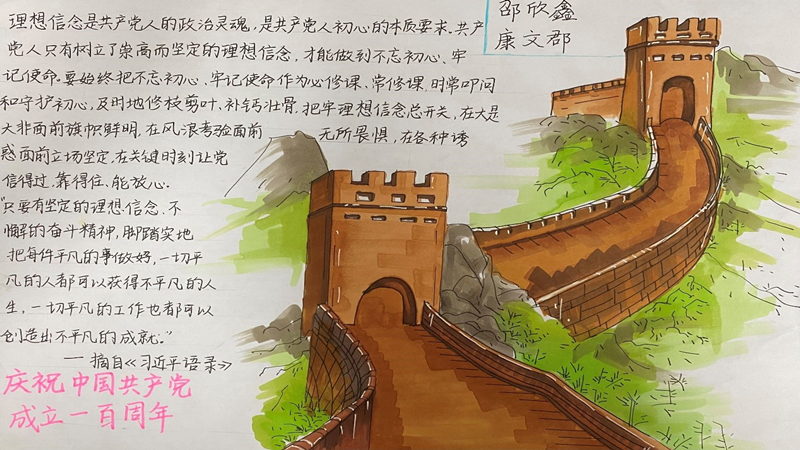 理想信念是共产党人的政治灵魂,是共产党人初心的本质要求。共产
党人只有树立了崇高而坚定的理想信念,才能做到不忘初心、牢
记使命。要始终把不忘初心、牢记使命作为必修课、常修课,时常叩问
和守护初心,及时地修枝剪叶、补钙壮骨,把牢理想信念总开关,在大是
大非面前旗帜鲜明,在风浪考验面前 无所畏惧,在各种诱
惑面前立场坚定,在关键时刻让党
信得过,靠得住,能放心。
“只要有坚定的理想信念、不
懈的奋斗精神,脚踏实地
把每件平凡的事做好,一切平
凡的人都可以获得不平凡的人
生,一切平凡的工作也都可以
创造出不平凡的成就。”
——摘自《习近平语录》
庆祝中国共产党
成立一百周年
邵欣鑫
康文郡